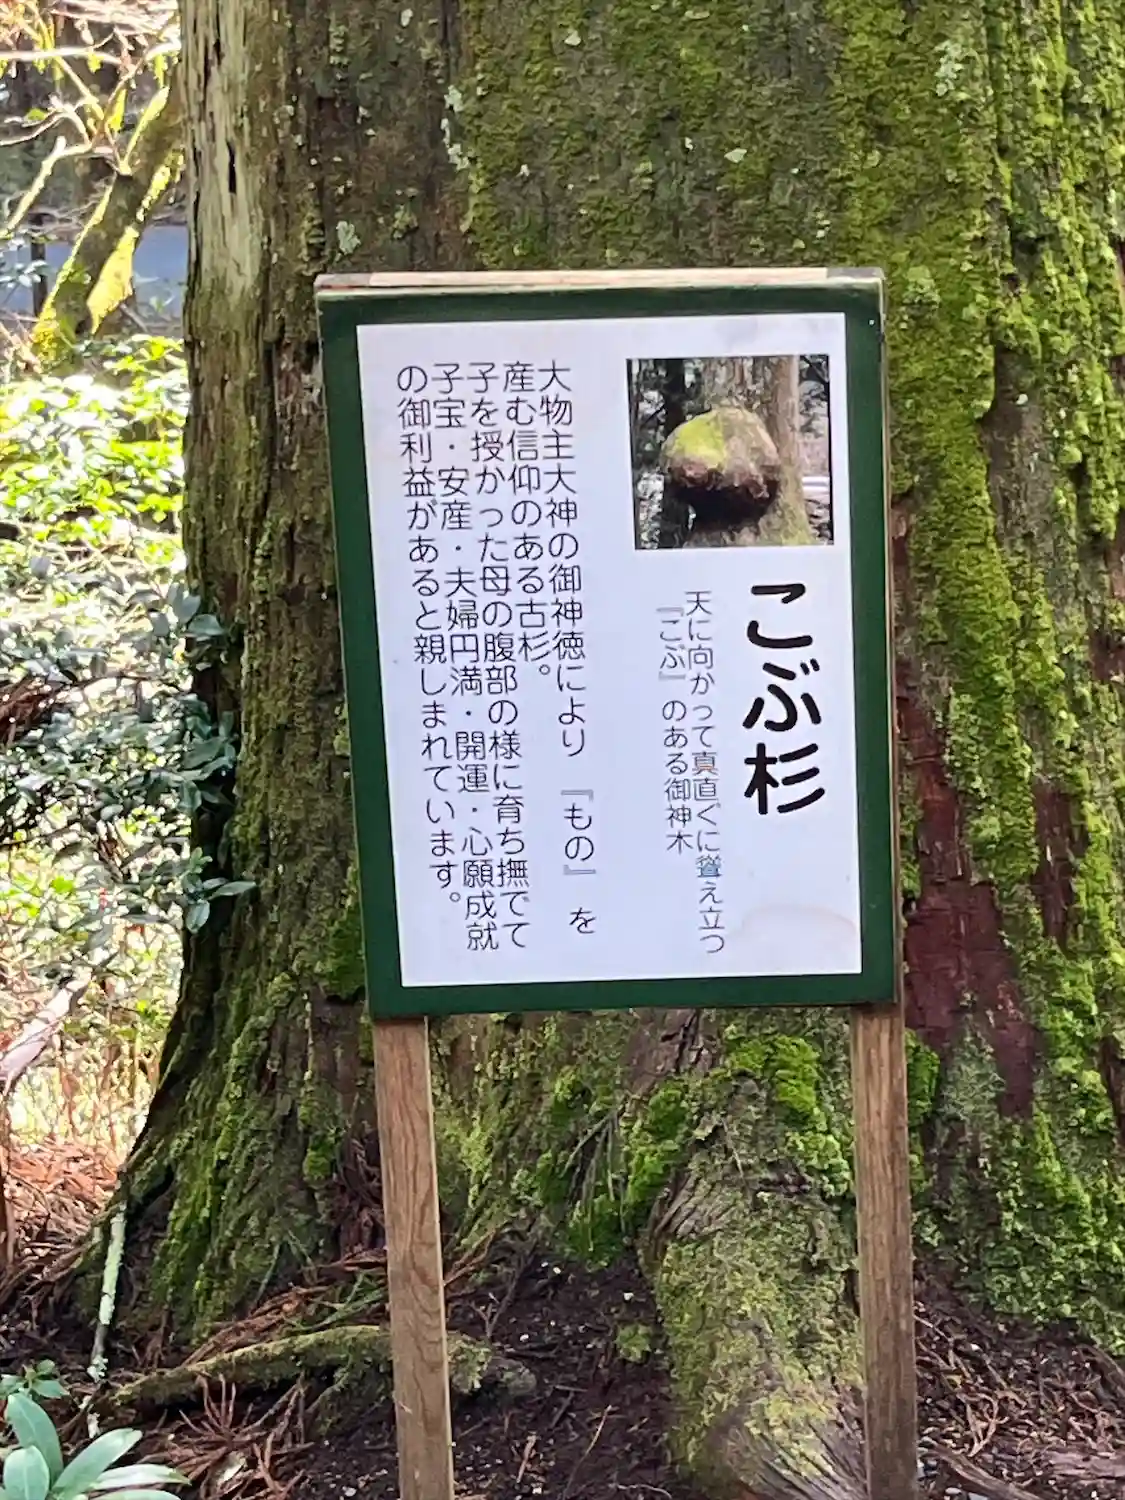 こぶ杉
天に向かって真直ぐに聳え立つ
『こぶ』のある御神木
大物主大神の御神徳により『もの』を
産む信仰のある古杉。
子を授かった母の腹部の様に育ち撫でて
子宝・安産・夫婦円満・開運・心願成就
の御利益があると親しまれています。